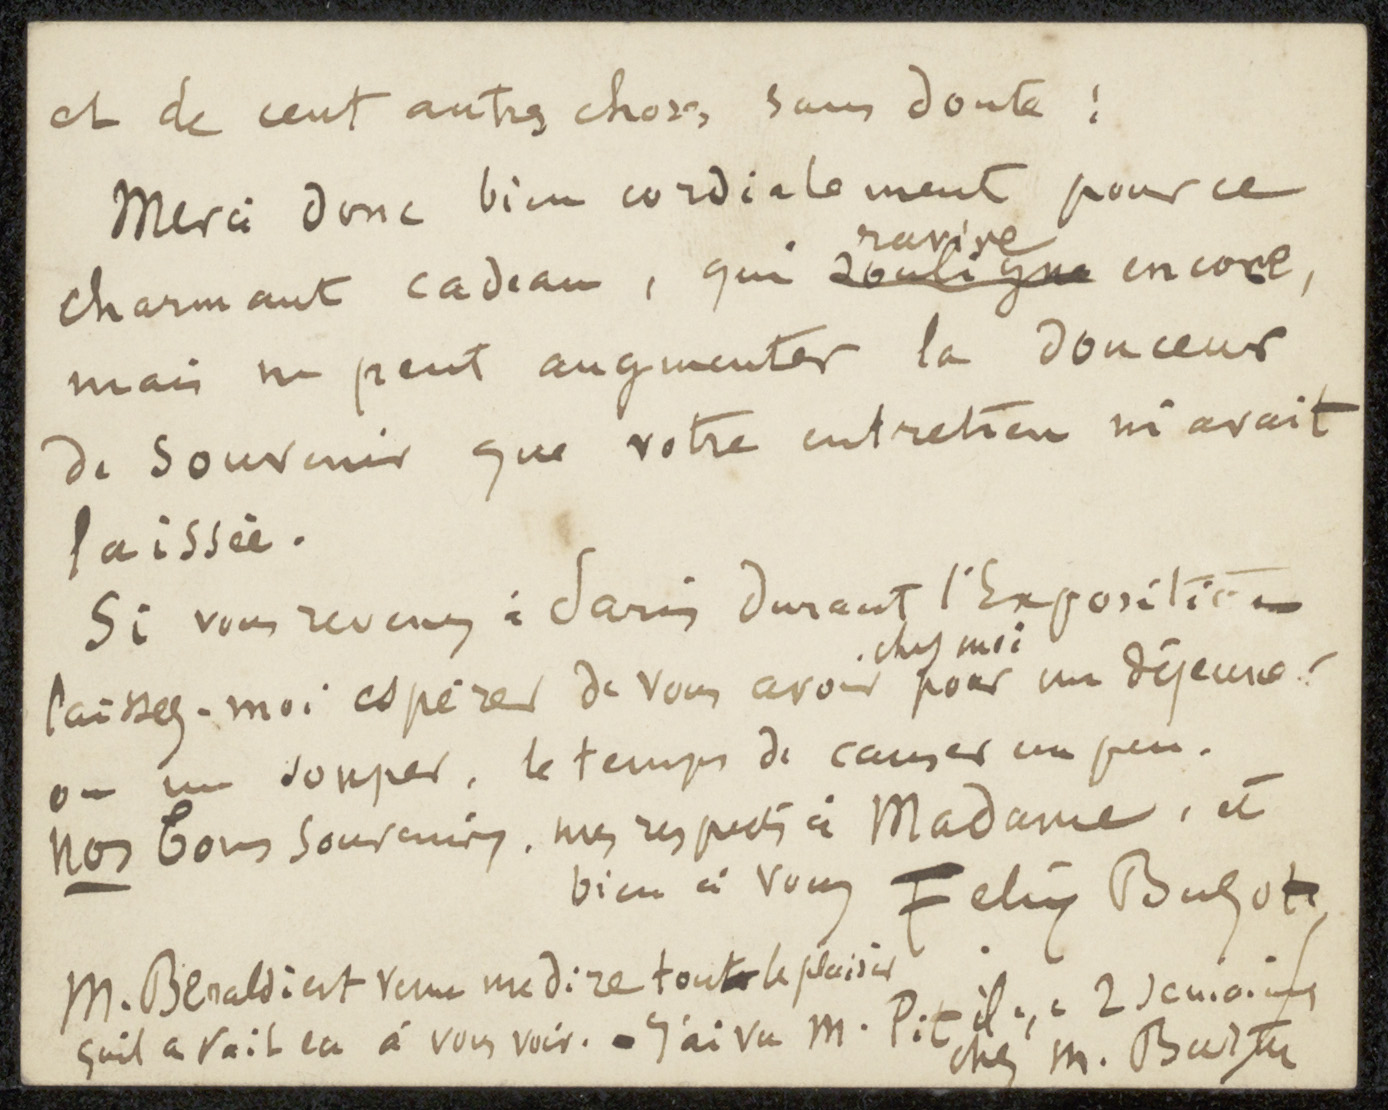 et de cent autres choses, sans doute !
Merci donc bien cordialement pour ce
ravive
charmant cadeau, qui souligne encore,
mais ne peut augmenter la douceur
de souvenir que votre entretien m'avait
laissée.
Si vous revenez à Paris durant l'Exposition
chez moi
laissez-moi espérer de vous avoir pour un déjeuner
ou un souper, le temps de causer un peu.
nos bons souvenirs, mes respects à Madame, et
bien à vous Felix Buhot
M. Beraldi est venu me dire tout le plaisir
qu'il avait eu à vous voir. - J'ai vu M. Pit il y a 2 semaines
chez M. Burty